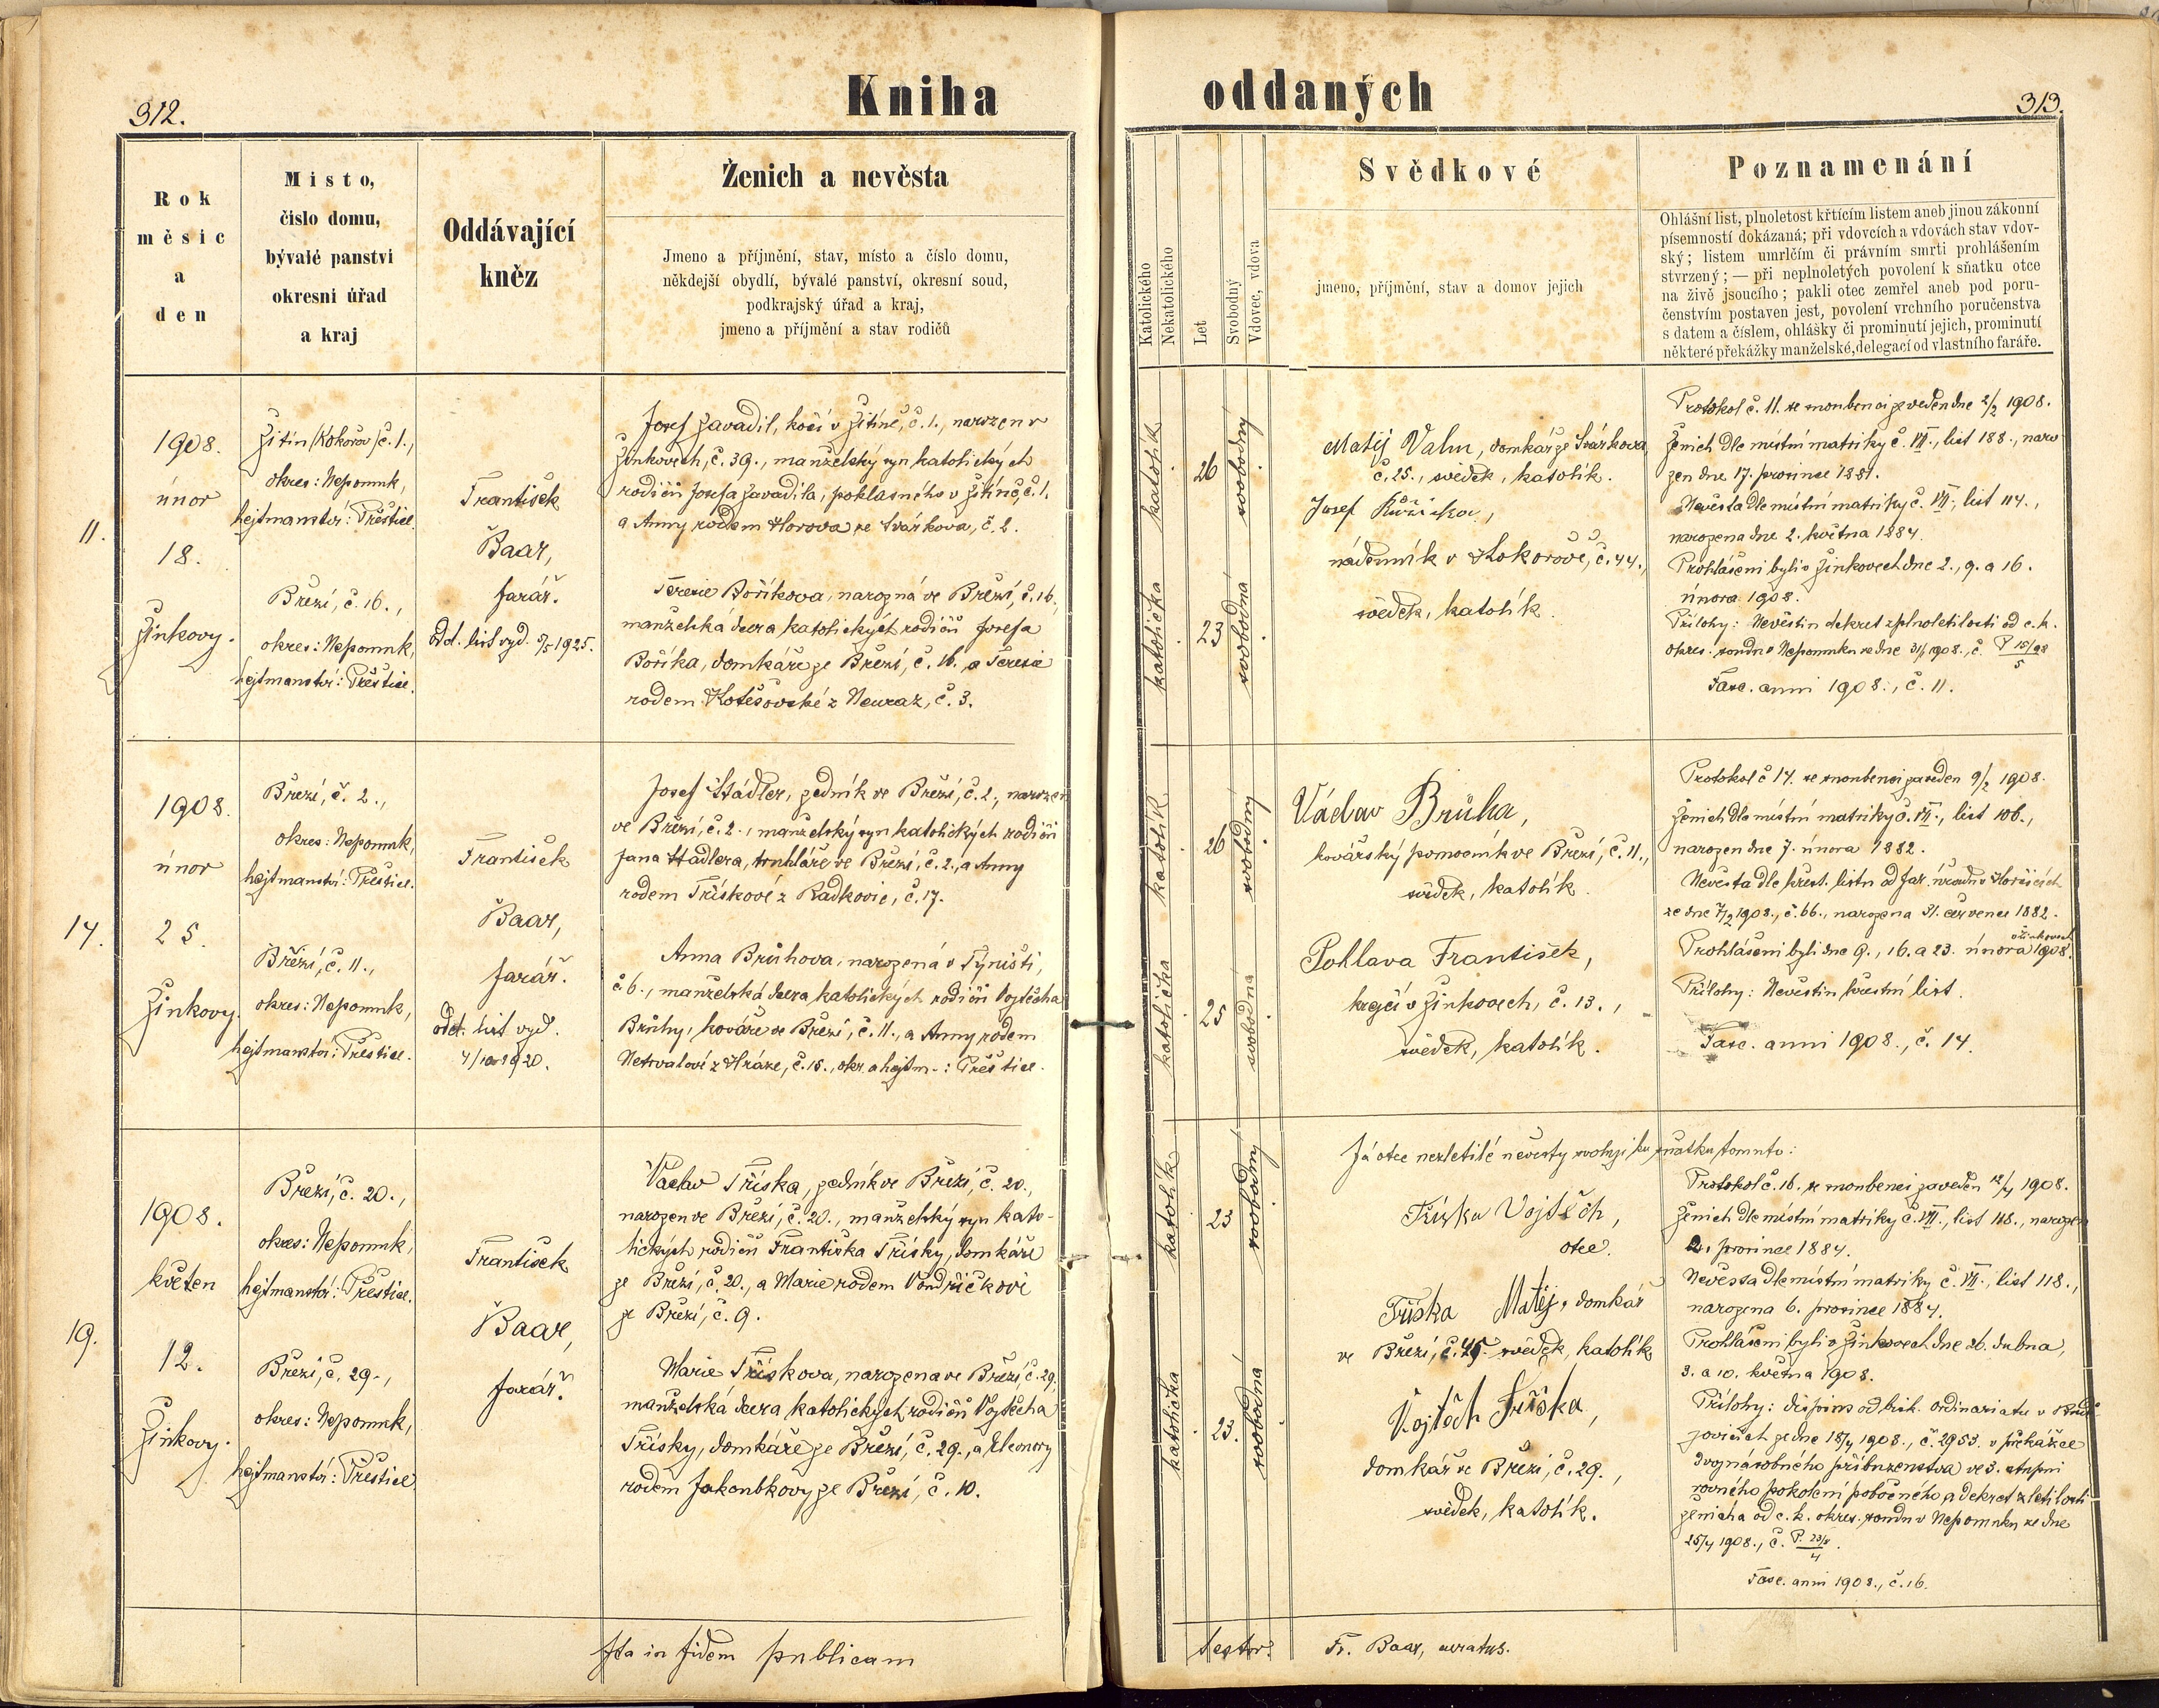 312.
Kniha
Rok
měsíc
a
den
Místo,
číslo domu,
bývalé panství
okresní úřad
a kraj
Oddávající
kněz
Ženich a nevěsta
Jmeno a příjmění, stav, místo a číslo domu,
někdejší obydlí, bývalé panství, okresní soud,
podkrajský úřad a kraj,
jmeno a příjmění a stav rodičů
11.
1908.
únor
18.
Žinkovy.
Žitín (Kokořov) č. 1.,
okres: Nepomuk,
hejtmanství: Přeštice.
Březí, č. 16.,
okres: Nepomuk,
hejtmanství: Přeštice.
František
Baar,
farář.
odd. list vyd. 1925.
Josef Zavadil, kočí v Žitíně, č. 1., narozen v
Žinkovech, č. 39., manželský syn katolických
rodičů Josefa Zavadila, poklasného v Žitíně, č. 1.
a Anny rodem Horova ze Svárkova, č. 2.
Terezie Boříkova, narozná ve Březí, č. 16.,
manželská dcera katolických rodičů Josefa
Boříka, domkáře ze Březí, č. 16. a Terezie
rodem Kotěšovské z Neuraz, č. 3.
14.
1908.
únor
25.
Žinkovy.
Březí, č. 2.,
okres: Nepomuk,
hejtmanství: Přeštice.
Březí, č. 11.,
okres: Nepomuk,
hejtmanství: Přeštice.
František
Baar,
farář.
odd. list vyd.
4/10 1920.
Josef Hádler, zedník ve Březí, č. 2., narozen
ve Březí, č. 2., manželský syn katolických rodičů
Jana Hádlera, truhláře ve Březí, č. 2., a Anny
rodem Třískové z Radkovic, č. 17.
Anna Brůhova, narozená v Týništi,
č. 6., manželská dcera katolických rodičů Vojtěcha
Brůhy, kováře ve Březí, č. 11., a Anny rodem
Netrvalové z Hráze, č. 15., okr. a hejtm-: Přeštice.
19.
1908.
květen
12.
Žinkovy.
Březí, č. 20.,
okres: Nepomuk,
hejtmanství: Přeštice.
Březí, č. 29.,
okres: Nepomuk,
hejtmanství: Přeštice
František
Baar,
farář.
Václav Tříska, zedník ve Březí, č. 20.,
narozen ve Březí, č. 20., manželský syn kato-
lických rodičů Františka Třísky, domkáře
ze Březí, č. 20., a Marie rodem Vondřičkovi
ze Březí, č. 9.
Marie Třískova, narozena ve Březí č. 29,
manželská dcera katolických rodičů Vojtěcha
Třísky, domkáře ze Březí, č. 29., a Eleonory
rodem Jakoubkovy ze Březí, č. 10.
Ita in fidem publicam
oddaných
313.
Katolického
Nekatolického
Let
Svobodný
Vdovec, vdova
Svědkové
jmeno, příjmění, stav a domov jejich
Poznamenání
Ohlášní list, plnoletost křtícím listem aneb jinou zákonní
písemností dokázaná; při vdovcích a vdovách stav vdov-
ský; listem umrlčím či právním smrti prohlášením
stvrzený; — při neplnoletých povolení k sňatku otce
na živě jsoucího; pakli otec zemřel aneb pod poru-
čenstvím postaven jest, povolení vrchního poručenstva
s datem a číslem, ohlášky či prominutí jejich, prominutí
některé překážky manželské, delegací od vlastního faráře.
katolík
26
svobodný
katolička
23
svobodná
Matěj Valm, domkář ze Svárkova
č. 25., svědek, katolík.
Josef
nádenník v Kokorově, č. 44.,
svědek, katolík.
Protokol č. 11. ze snoubenci zaveden dne 2/2 1908.
Ženich dle místní matriky č. VII., list 188., naro
zen dne 17. prosince 1881.
Nevěsta dle místní matriky č. VII., list 114.,
narozena dne 2. května 1884.
Prohlášeni byli v Žinkovech dne 2., 9. a 16.
února 1908.
Přílohy: Nevěstin dekret zplnoletilosti od c. k.
okres. soudu v Nepomuku ze dne 31/1 1908., č. P 15/08
5
Fasc. anni 1908., č. 11.
katolík
26
svobodný
katolička
25
svobodna
Václav Brůha,
kovářský pomocník ve Březí, č. 11.,
svědek, katolík.
Pohlava František,
krejčí v Žinkovech, č. 13.,
svědek, katolík.
Protokol č 14. se snoubenci zaveden 9/2 1908.
Ženich dle místní matriky č. VII., list 106.,
narozen dne 7. února 1882.
Nevěsta dle křest. listu od far. úřadu v Horšicích
ze dne 7/2 1908., č. 66., narozena 31. července 1882.
Prohlášeni byli dne 9., 16. a 23. února v Žinkovech 1908.
Přílohy: Nevěstin křestní list.
Fasc. anni 1908., č. 14.
katolík
23
svobodný
katolička
23.
svobodná
Já otec nezletilé nevěsty svoluji ku sňatku tomuto:
Tříska Vojtěch,
otec.
Tříska Matěj, domkář
ve Březí, č. 25. svědek, katolík
Vojtěch Tříska,
domkář ve Březí, č. 29.,
svědek, katolík.
Protokol č. 16. se snoubenci zaveden 12/4 1908.
Ženich dle místní matriky č. VII., list 118., narozen
2. prosince 1884.
Nevěsta dle místní matriky č. VII., list 118.,
narozena 6. prosince 1884.
Prohlášeni byli v Žinkovech dne 26. dubna,
3. a 10. května 1908.
Přílohy: dispens od bisk. ordinariatu v Budě
jovicích ze dne 18/4 1908., č. 2953. v překážce
dvojnásobného příbuzenstva ve 3. stupni
rovného pokolení pobočného a dekret zletilosti
ženicha od c. k. okres. soudu v Nepomuku ze dne
25/4 1908., č. P. 23/8
4
Fasc. anni 1908., č. 16.
testor:
Fr. Baar, curatus.